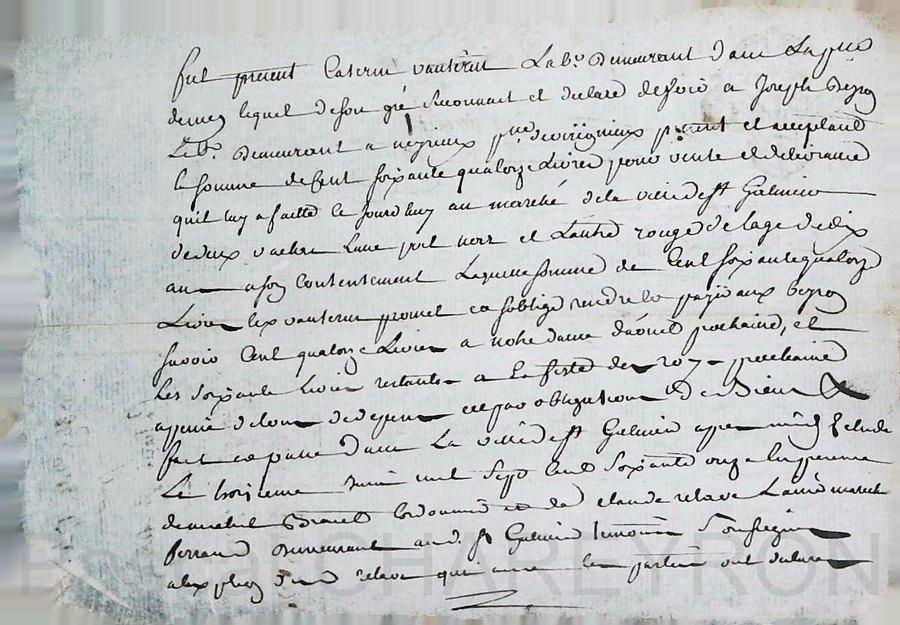 fut present Caterin vanterin Lab.r Demeurant dans La psse
lequel de son gré Reconnait et declare devoir a Joseph Peyron
Lab.r Demeurant a psse present et acceptant
la somme de Cent soixante quatorze Livres pour vente et delivrance
quil luy a faitte ce jourdhuy au marché de la ville de st Galmier
de deux vaches Lune poil noir et Lautre rouge de lage de dix
ans a son Contentement Laquelle somme de Cent soixante quatorze
Livres lex vanterin promet et soblige rendre et payer aux Peyron
savoir Cent quatorze Livres a notre dame daout prochaine, et
Les soixante Livres restante a la feste des roy prochaine
a peine de tous depens par obligations de Biens &
fait et passé dans La ville de st Galmier apres midy Etude
Le troizieme juin mil sept Cent soixante onze En presence
de Cordonnier et de claude relave Lainé marechal
ferrand Demeurant aud. st Galmier temoins Soussignés
relave qui avec les parties ont declaré
Pascal CHARLEYRON